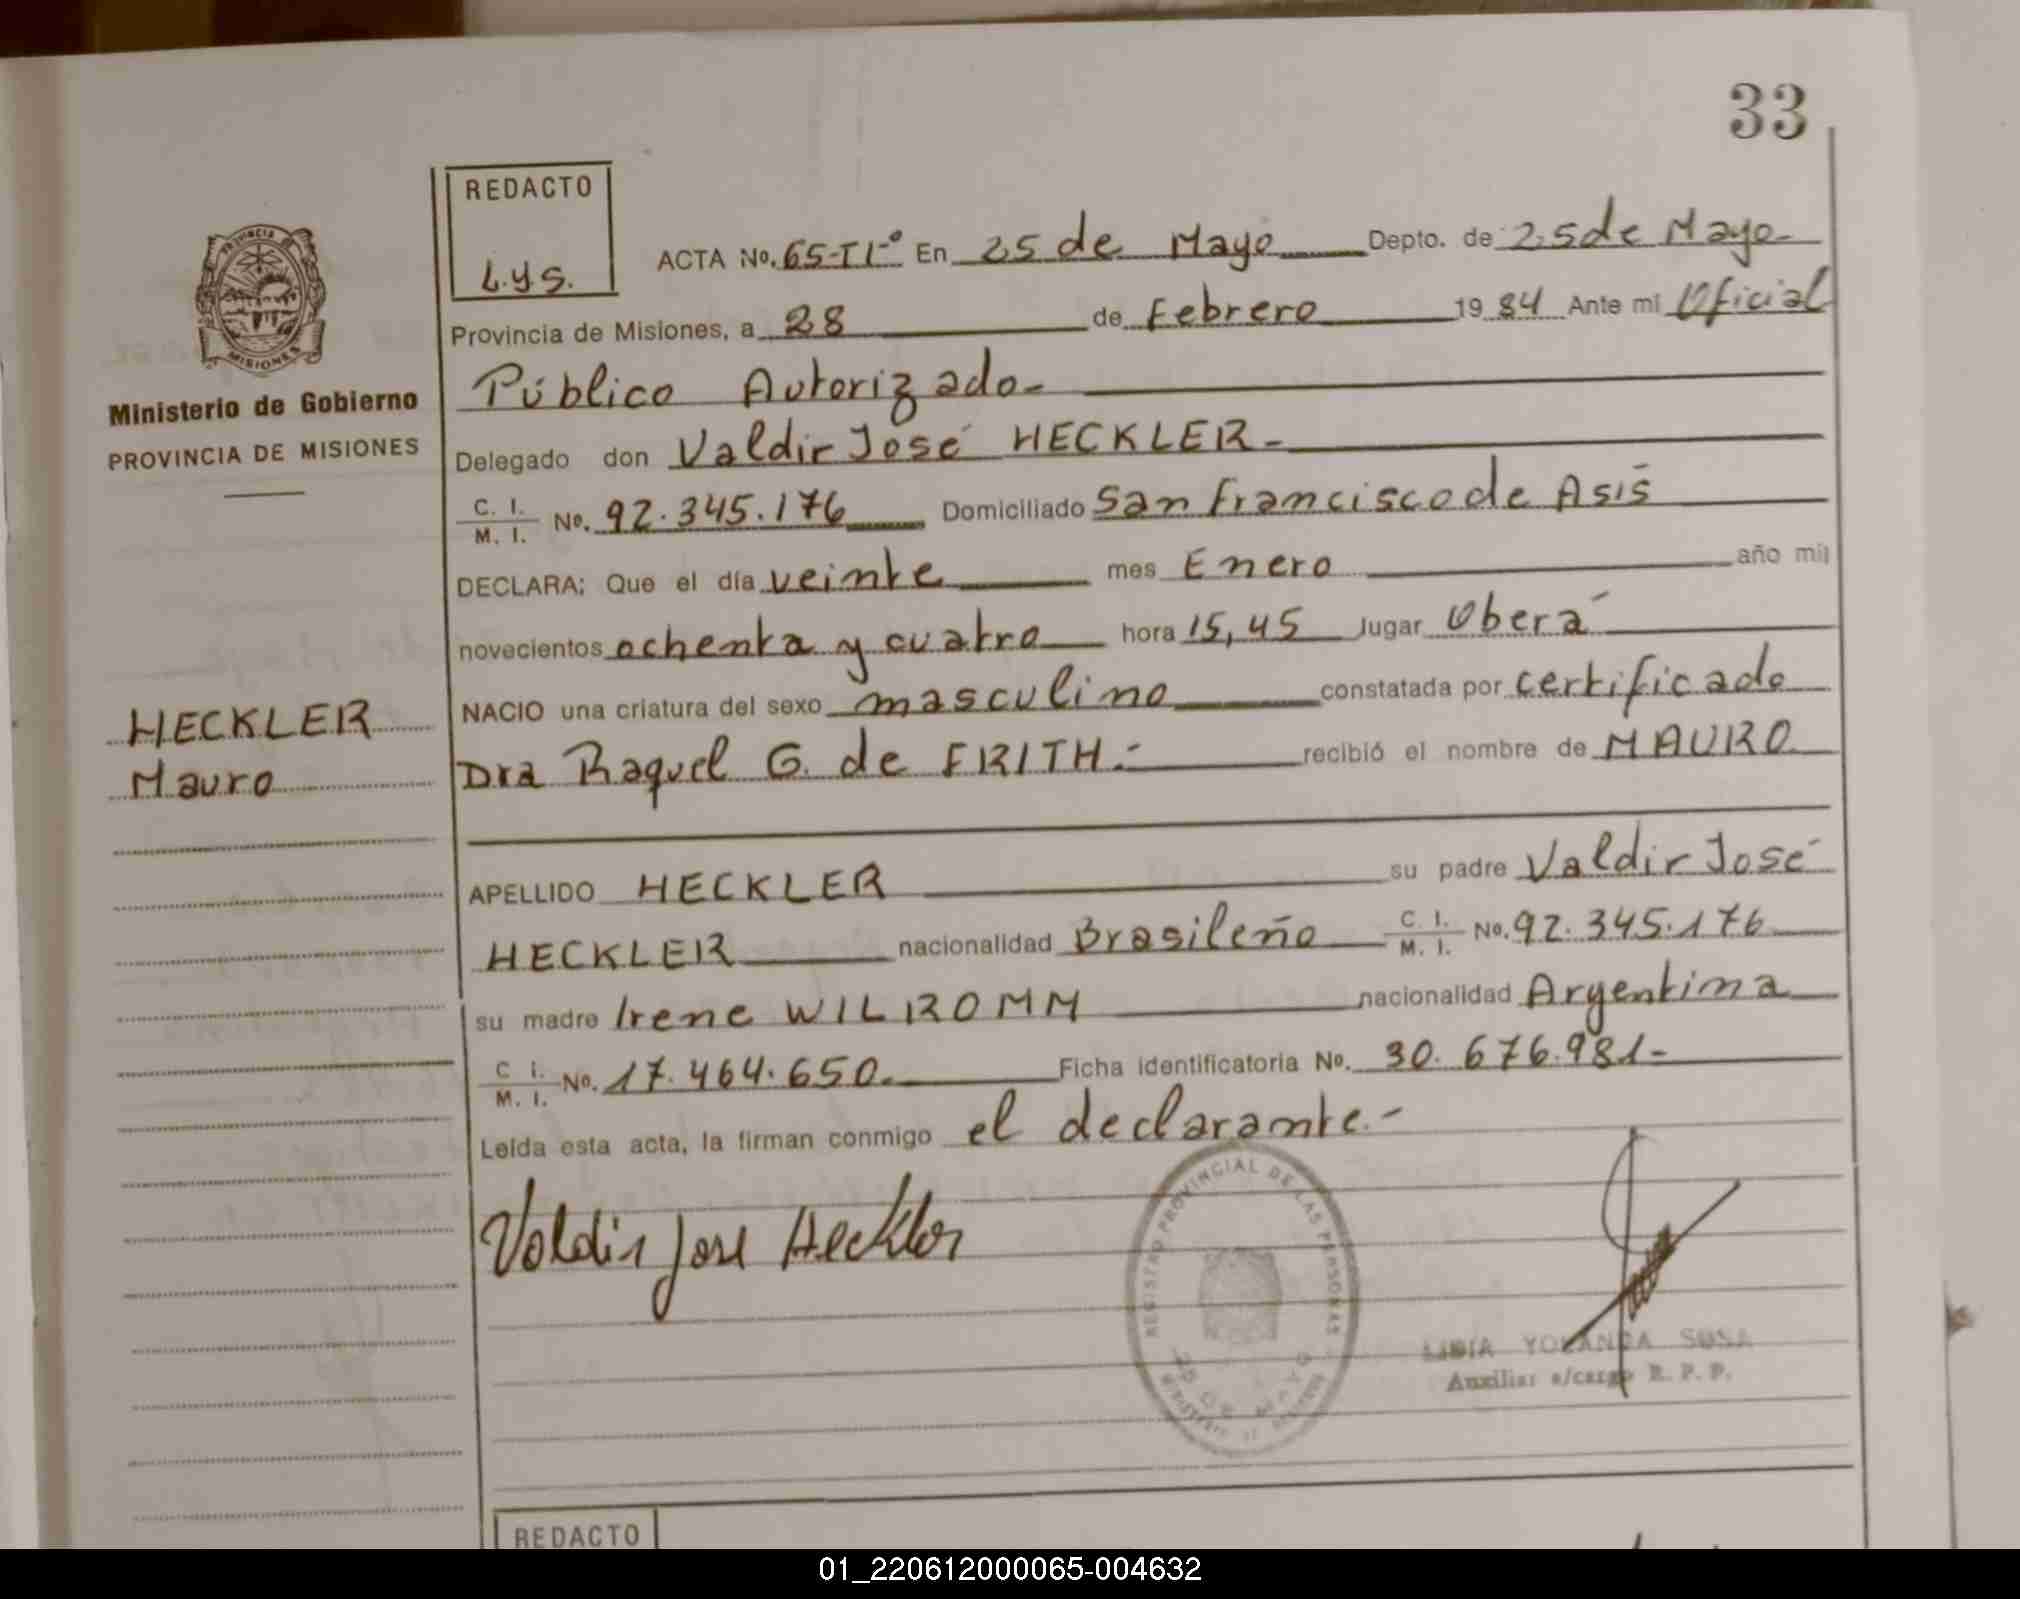 33
REDACTO
L.y.s.
ACTA No. 65-TI-º En 25 de Mayo Depto. de 25 de Mayo-
Provincia de Misiones, a 28 de Febrero 1984 Ante mi Oficial
Público Autorizado-
PROVINCIA DE MISIONES
Ministerio de Gobierno
PROVINCIA DE MISIONES
Delegado don Valdir José HECKLER-
C. I. / M. I. No. 92.345.176 Domiciliado San Francisco de Asís
DECLARA: Que el día veinte mes Enero año mil
novecientos ochenta y cuatro hora 15,45 lugar Oberá
NACIO una criatura del sexo masculino constatada por certificado
HECKLER
Mauro
Dra Raquel G. de FRITH.- recibió el nombre de MAURO
APELLIDO HECKLER su padre Valdir José
HECKLER nacionalidad Brasileño C. I. / M. I. No. 92.345.176
su madre Irene WILROMM nacionalidad Argentina
C I. / M. I. No. 17.464.650. Ficha identificatoria No. 30.676.981-
Leída esta acta, la firman conmigo el declarante.-
Valdir José Heckler
REGISTRO PROVINCIAL DE LAS PERSONAS
25 DE MAYO
LIDIA YOLANDA SUSA
Auxiliar a/cargo R. P. P.
REDACTO
01_220612000065-004632